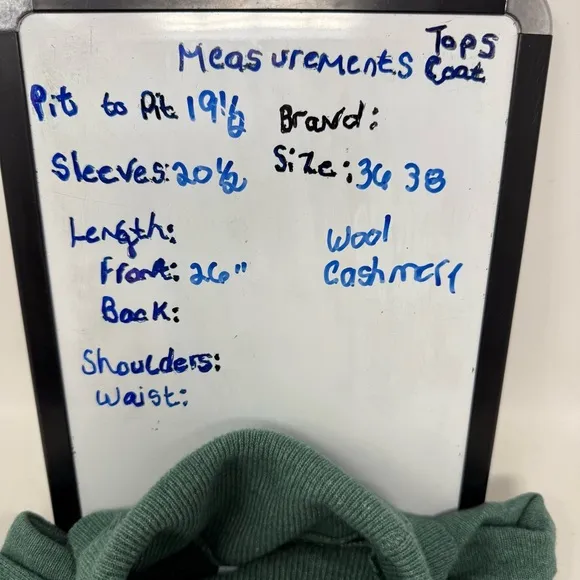 Measurements Tops
Coat
Pit to Pit 19 1/2
Brand:
Sleeves: 20 1/2
Size: 36 38
Length:
Front: 26"
Back:
Wool
Cashmere
Shoulders:
Waist: